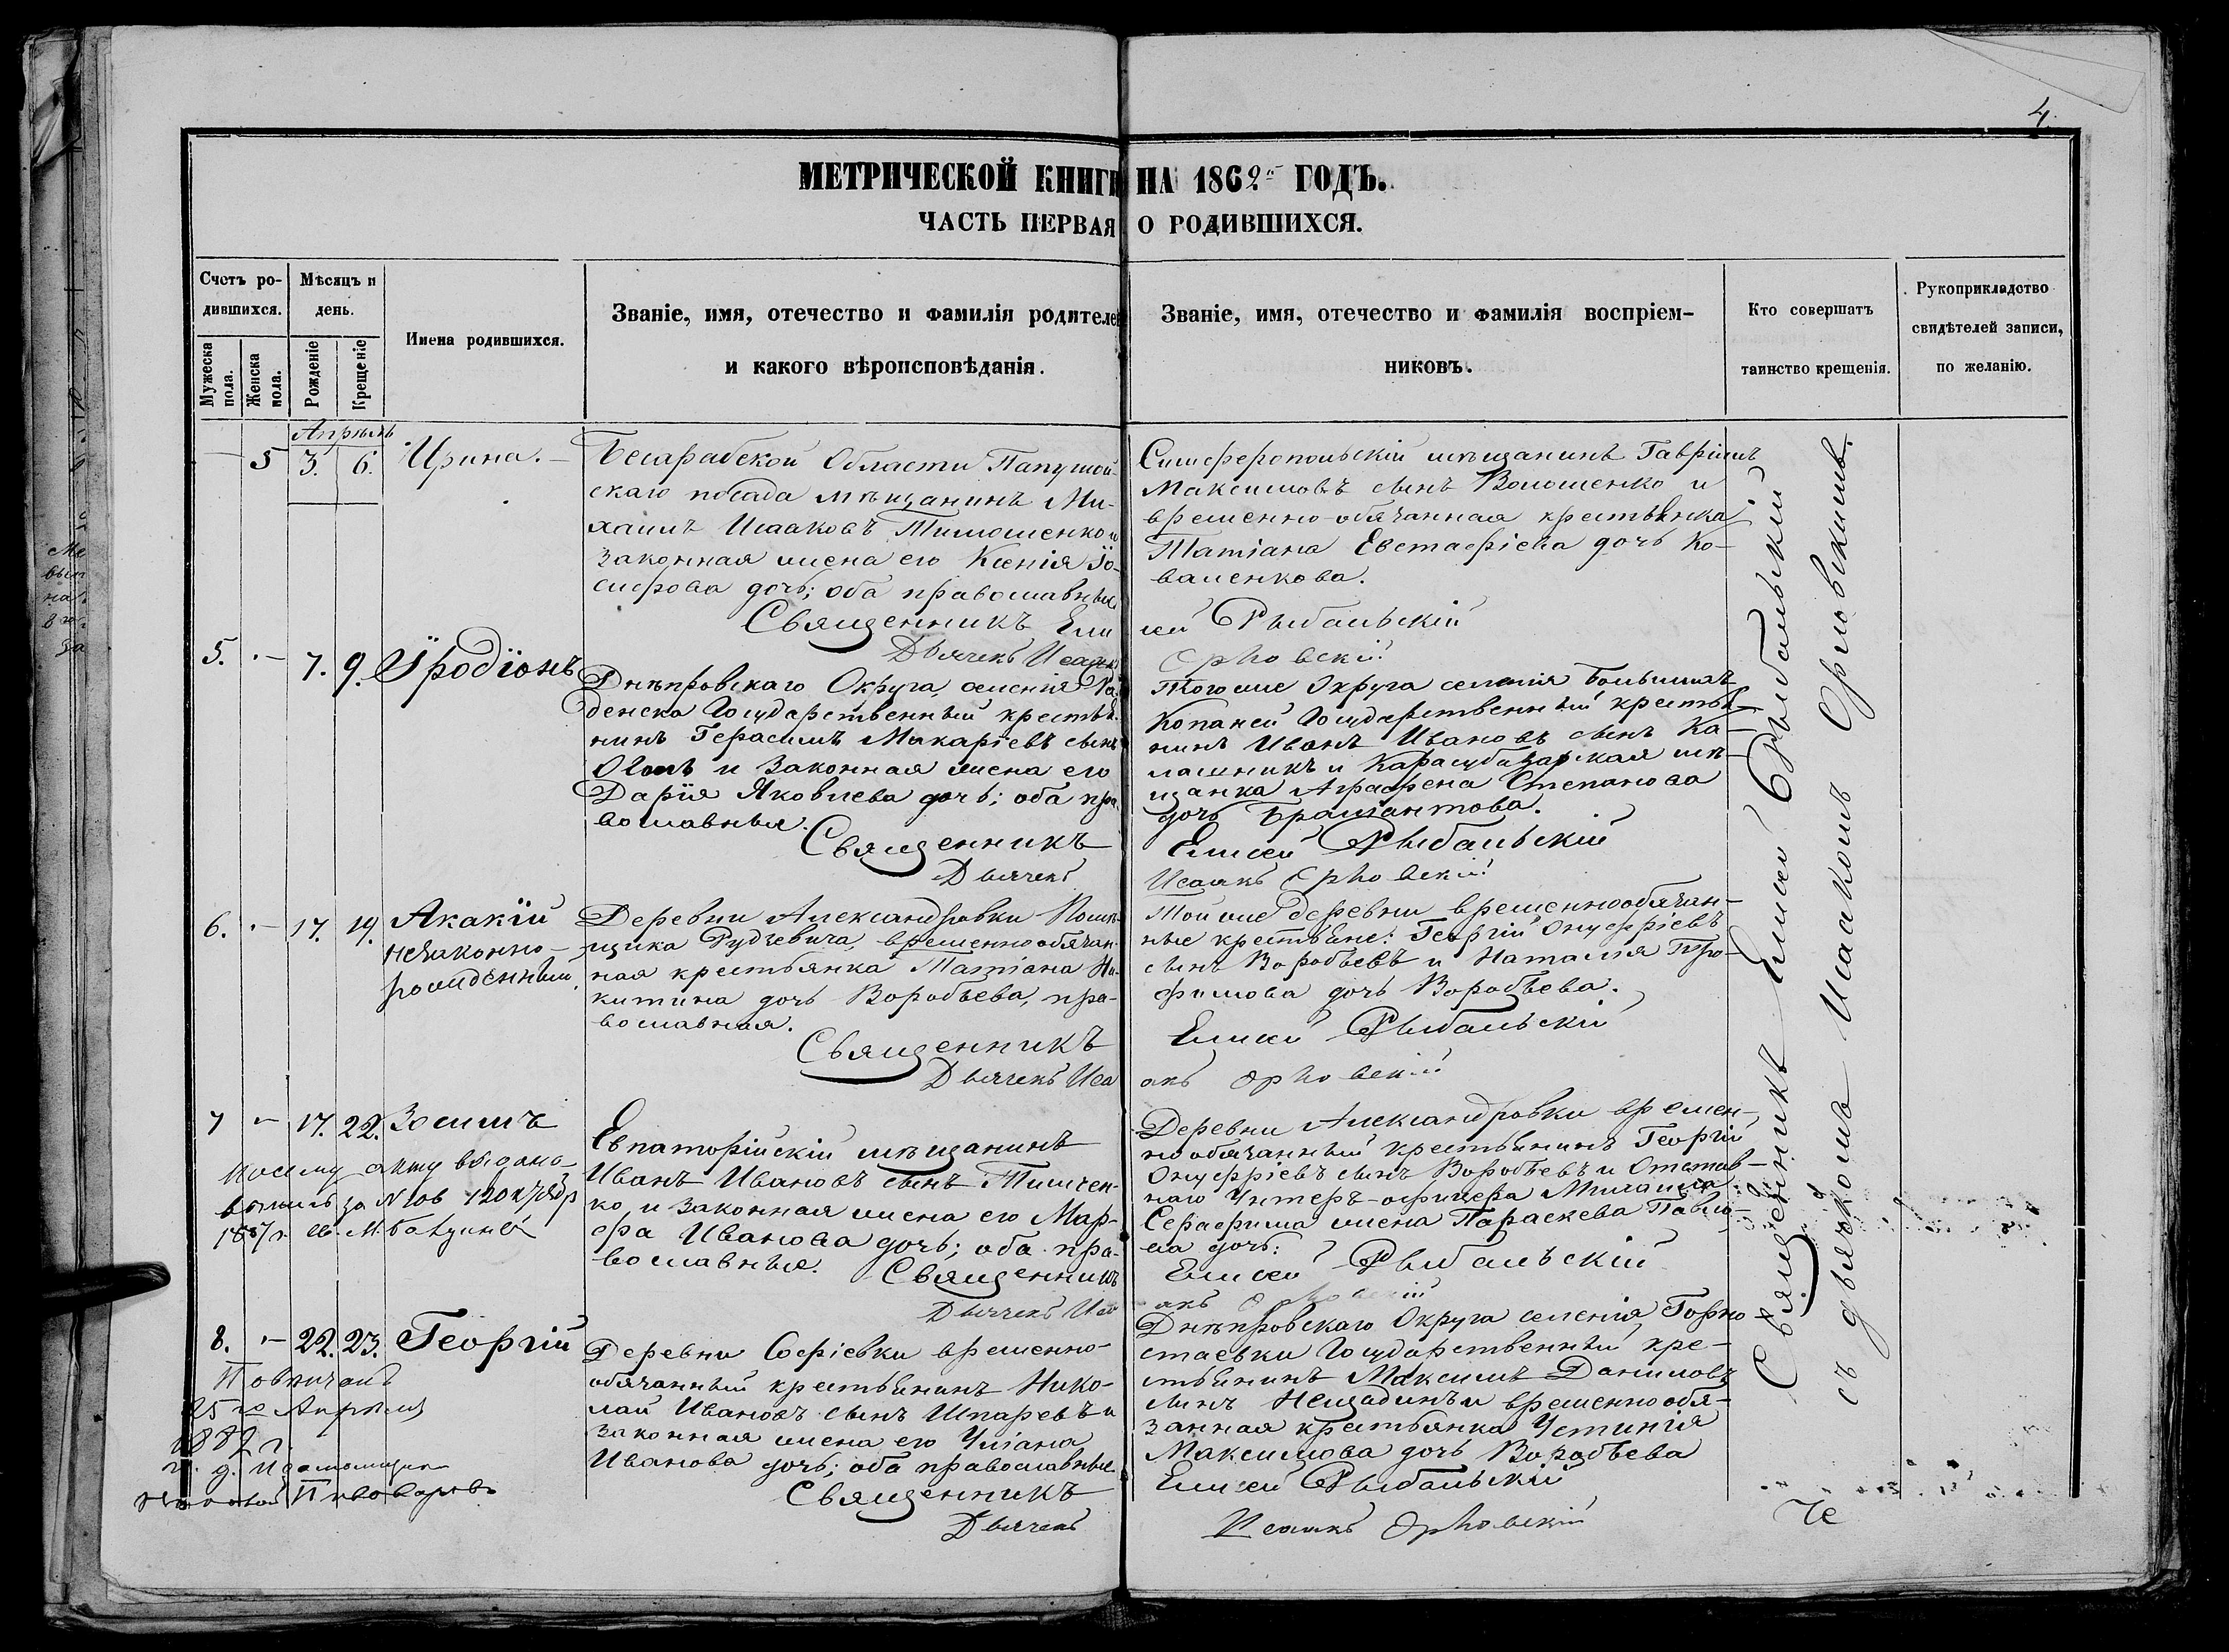 4.
МЕТРИЧЕСКОЙ КНИГИ НА 1862й ГОДЪ.
ЧАСТЬ ПЕРВАЯ О РОДИВШИХСЯ.
Счетъ ро-
дившихся.
Мужеска
пола.
Женска
пола.
Мѣсяцъ и
день.
Рожденіе
Крещеніе
Имена родившихся.
Званіе, имя, отечество и фамилія родителей
и какого вѣроисповѣданія.
Званіе, имя, отечество и фамилія воспріем-
никовъ.
Кто совершатъ
таинство крещенія.
Рукоприкладство
свидѣтелей записи,
по желанію.
Апрѣль
5 3. 6. Ирина.
Бесарабской Области Папушой-
скаго посада мѣщанинъ Ми-
хаилъ Исааковъ Тимошенко и
законная жена его Ксенія Іо-
сифова дочь; оба православные
Симферопольскій мѣщанинъ Гавріилъ
Максимовъ сынъ Волошенко и
временно-обязанная крестьянка
Татіана Евстафіева дочь Ко-
валенкова.
Священникъ Елисей Рыбальскій
Дьячекъ Исаакъ Орловскій
5. 7. 9. Іродіонъ
Днѣпровскаго Округа, селенія Ра-
денска Государственный крестья-
нинъ Герасимъ Макаріевъ сынъ
и законная жена его
Дарія Яковлева дочь; оба пра-
вославные.
Того же Округа селенія Большихъ
Копаней Государственный крестья-
нинъ Иванъ Ивановъ сынъ Ка-
лашникъ и Карасубазарская мѣ-
щанка Аграфена Степанова
дочь
Священникъ Елисей Рыбальскій
Дьячекъ Исаакъ Орловскій
6. 17. 19. Акакій
незаконно-
рожденный
Деревни Александровки Помѣ-
щика Рудзевича, временнообязан-
ная крестьянка Татіана Ни-
китина дочь Воробьева, пра-
вославная.
Той же деревни временнообязан-
ные крестьяне: Георгій Онуфріевъ
сынъ Воробьевъ и Наталія Тро-
фимова дочь Воробьева.
Священникъ Елисей Рыбальскій
Дьячекъ Исаакъ Орловскій
7 17. 22. Зосимъ
По сему акту выдана
выпись за N
1887 г. св. М.
Евпаторійскій мѣщанинъ
Иванъ Ивановъ сынъ Тимчен-
ко, и законная жена его Мар-
фа Иванова дочь; оба пра-
вославные.
Деревни Александровки времен-
но обязанный крестьянинъ Георгій
Онуфріевъ сынъ Воробьевъ и Отстав-
наго Унтеръ-офицера Михаила
Серафима жена Параскева Павло-
ва дочь.
Священникъ Елисей Рыбальскій
Дьячекъ Исаакъ Орловскій
8. 22. 23. Георгій
Повѣнчанъ
25го Апрѣля
188 г.
Пивоваровъ
Деревни Софіевки временно-
обязанный крестьянинъ Нико-
лай Ивановъ сынъ Шпаревъ и
законная жена его Уліана
Иванова дочь; оба православные
Днѣпровскаго Округа селенія Горно
стаевки Государственный кре-
стьянинъ Максимъ Даниловъ
сынъ и временнообя-
занная крестьянка Устинія
Максимова дочь Воробьева
Священникъ Елисей Рыбальскій
Дьячекъ Исаакъ Орловскій
Священникъ Елисей Рыбальскій
съ дьячкомъ Исаакомъ Орловскимъ.